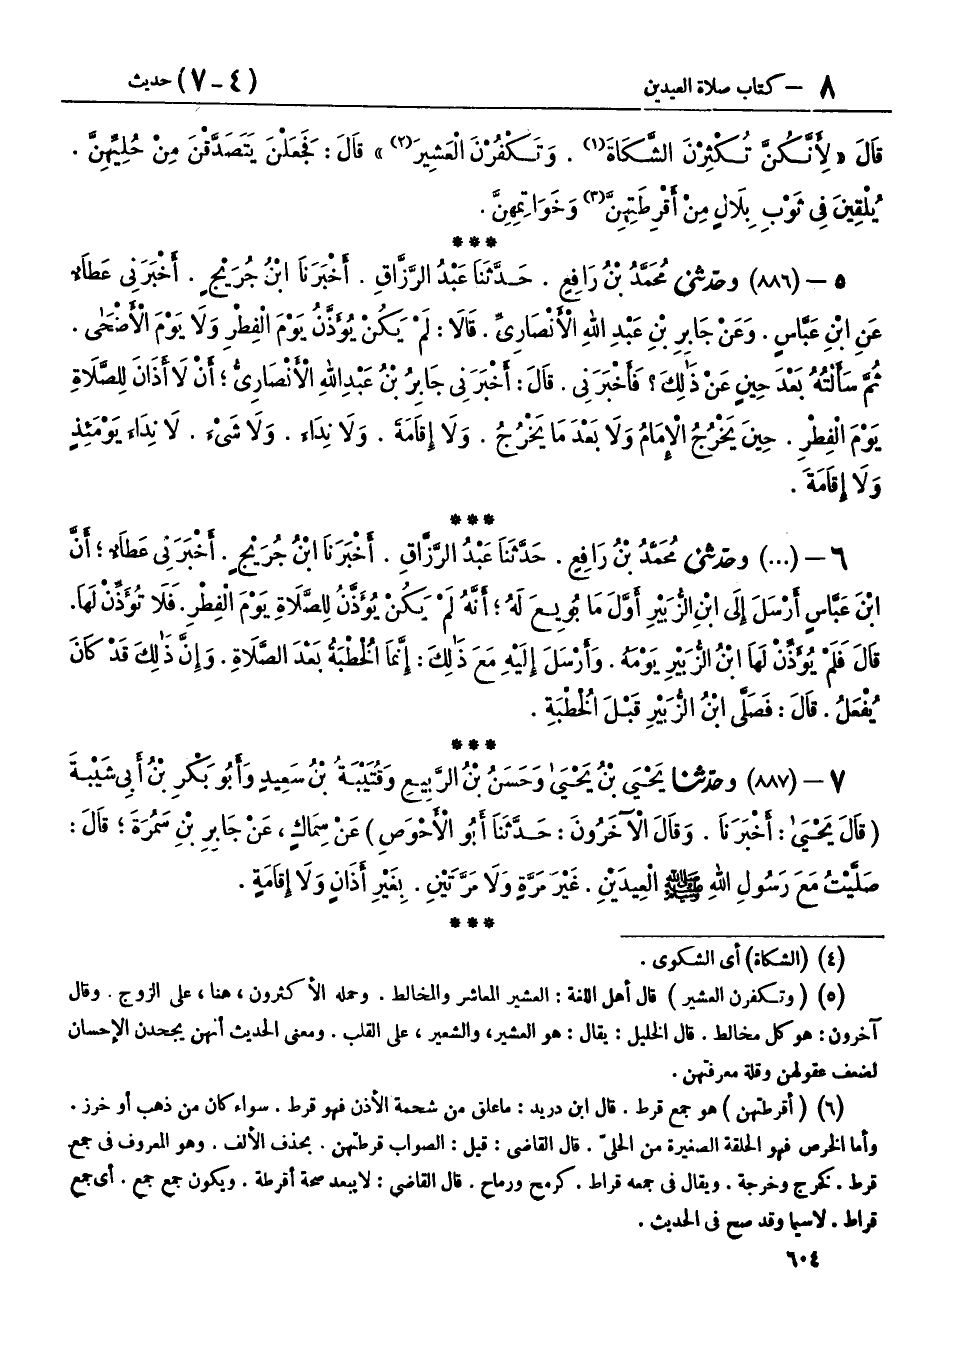 ٨ — كتاب صلاة العيدين (٤ - ٧) حديث
قَالَ « لِأَنَّكُنَّ تُكْثِرْنَ الشَّكَاةَ(١) . وَتَكْفُرْنَ الْعَشِيرَ(٢) » قَالَ : فَجَعَلْنَ يَتَصَدَّقْنَ مِنْ حُلِيِّهِنَّ .
يُلْقِينَ فِي ثَوْبِ بِلَالٍ مِنْ أَقْرِطَتِهِنَّ(٣) وَخَوَاتِمِهِنَّ .
***
٥ — (٨٨٦) وحدثني مُحَمَّدُ بْنُ رَافِعٍ . حَدَّثَنَا عَبْدُ الرَّزَّاقِ . أَخْبَرَنَا ابْنُ جُرَيْجٍ . أَخْبَرَنِي عَطَاءٌ
عَنِ ابْنِ عَبَّاسٍ . وَعَنْ جَابِرِ بْنِ عَبْدِ اللهِ الْأَنْصَارِيِّ . قَالَا : لَمْ يَكُنْ يُؤَذَّنُ يَوْمَ الْفِطْرِ وَلَا يَوْمَ الْأَضْحَىٰ .
ثُمَّ سَأَلْتُهُ بَعْدَ حِينٍ عَنْ ذَٰلِكَ ؟ فَأَخْبَرَنِي . قَالَ : أَخْبَرَنِي جَابِرُ بْنُ عَبْدِ اللهِ الْأَنْصَارِيُّ ؛ أَنْ لَا أَذَانَ لِلصَّلَاةِ
يَوْمَ الْفِطْرِ . حِينَ يَخْرُجُ الْإِمَامُ وَلَا بَعْدَ مَا يَخْرُجُ . وَلَا إِقَامَةَ . وَلَا نِدَاءَ . وَلَا شَيْءَ . لَا نِدَاءَ يَوْمَئِذٍ
وَلَا إِقَامَةَ .
***
٦ — (...) وحدثني مُحَمَّدُ بْنُ رَافِعٍ . حَدَّثَنَا عَبْدُ الرَّزَّاقِ . أَخْبَرَنَا ابْنُ جُرَيْجٍ . أَخْبَرَنِي عَطَاءٌ ؛ أَنَّ
ابْنَ عَبَّاسٍ أَرْسَلَ إِلَى ابْنِ الزُّبَيْرِ أَوَّلَ مَا بُويِعَ لَهُ ؛ أَنَّهُ لَمْ يَكُنْ يُؤَذَّنُ لِلصَّلَاةِ يَوْمَ الْفِطْرِ . فَلَا تُؤَذِّنْ لَهَا .
قَالَ فَلَمْ يُؤَذِّنْ لَهَا ابْنُ الزُّبَيْرِ يَوْمَهُ . وَأَرْسَلَ إِلَيْهِ مَعَ ذَٰلِكَ : إِنَّمَا الْخُطْبَةُ بَعْدَ الصَّلَاةِ . وَإِنَّ ذَٰلِكَ قَدْ كَانَ
يُفْعَلُ . قَالَ : فَصَلَّى ابْنُ الزُّبَيْرِ قَبْلَ الْخُطْبَةِ .
***
٧ — (٨٨٧) وحدثنا يَحْيَىٰ بْنُ يَحْيَىٰ وَحَسَنُ بْنُ الرَّبِيعِ وَقُتَيْبَةُ بْنُ سَعِيدٍ وَأَبُو بَكْرِ بْنُ أَبِي شَيْبَةَ
( قَالَ يَحْيَىٰ : أَخْبَرَنَا . وَقَالَ الْآخَرُونَ : حَدَّثَنَا أَبُو الْأَحْوَصِ ) عَنْ سِمَاكٍ ، عَنْ جَابِرِ بْنِ سَمُرَةَ ؛ قَالَ :
صَلَّيْتُ مَعَ رَسُولِ اللهِ ﷺ الْعِيدَيْنِ . غَيْرَ مَرَّةٍ وَلَا مَرَّتَيْنِ . بِغَيْرِ أَذَانٍ وَلَا إِقَامَةٍ .
***
(٤) (الشكاة) أى الشكوى .
(٥) ( وتكفرن العشير ) قال أهل اللغة : العشير المعاشر والمخالط . وحمله الأكثرون ، هنا ، على الزوج . وقال
آخرون : هو كل مخالط . قال الخليل : يقال : هو العشير ، والشعير ، على القلب . ومعنى الحديث أنهن يجحدن الإحسان
لضعف عقولهن وقلة معرفتهن .
(٦) ( أقرطتهن ) هو جمع قرط . قال ابن دريد : ماعلق من شحمة الأذن فهو قرط . سواء كان من ذهب أو خرز .
وأما الخرص فهو الحلقة الصغيرة من الحلىّ . قال القاضى : قيل : الصواب قرطتهن . بحذف الألف . وهو المعروف فى جمع
قرط . كخرج وخرجة . ويقال فى جمعه قراط . كرمح ورماح . قال القاضى : لايبعد صحة أقرطة . ويكون جمع جمع . أى جمع
قراط . لاسيما وقد صح فى الحديث .
٦٠٤